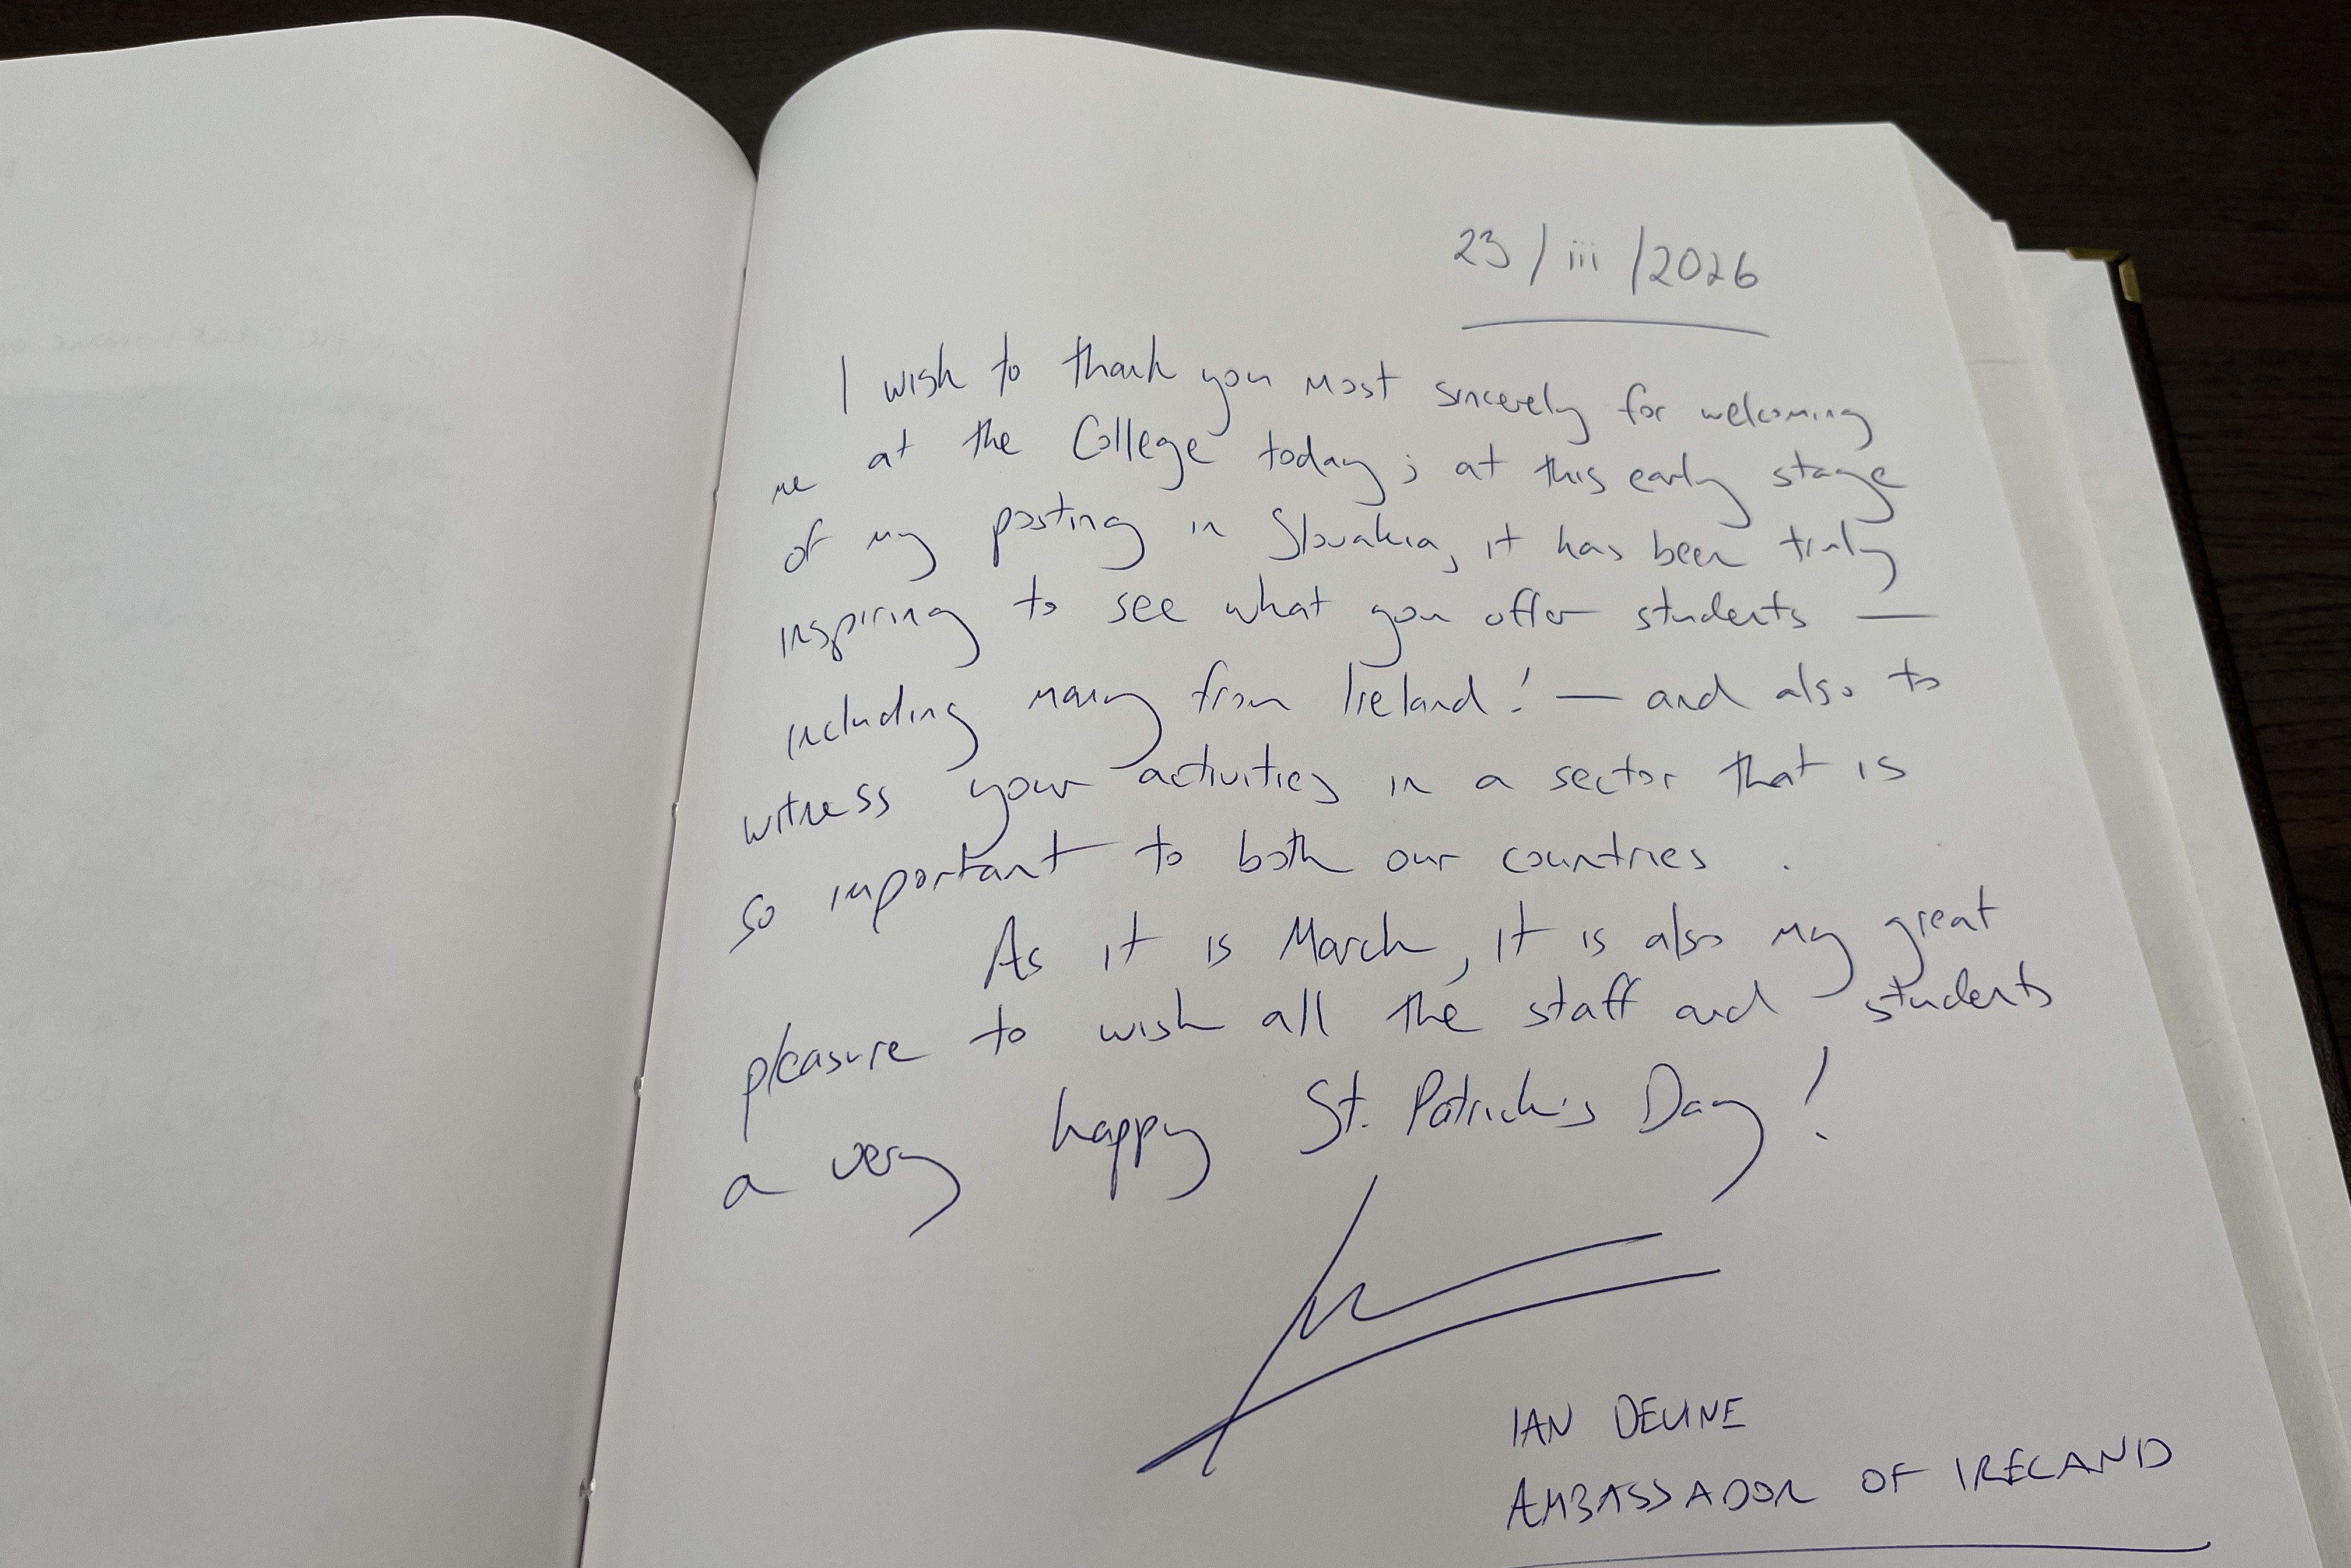 23/iii/2026
I wish to thank you most sincerely for welcoming
me at the College today; at this early stage
of my posting in Slovakia, it has been truly
inspiring to see what you offer students —
including many from Ireland! — and also to
witness your activities in a sector that is
so important to both our countries.
As it is March, it is also my great
pleasure to wish all the staff and students
a very happy St. Patrick's Day!
IAN DEVINE
AMBASSADOR OF IRELAND